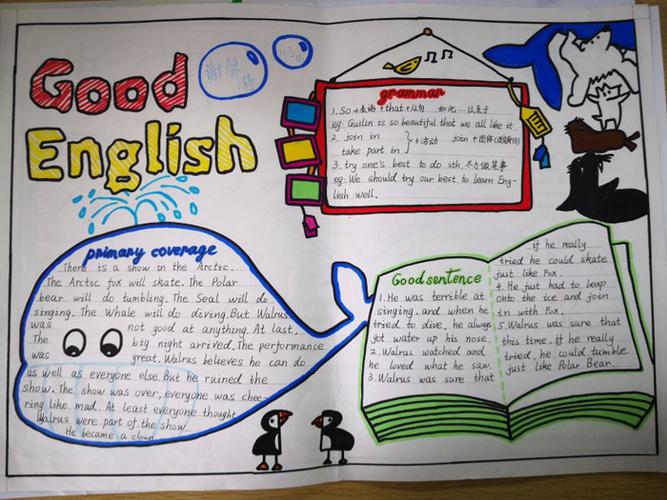 Good
English
grammar
1. So + 表语 + that + 从句 如此…以至于
eg. Guilin is so beautiful that we all like it.
2. join in
take part in } + 活动 join + 团体
3. try one's best to do sth. 尽力做某事
eg. We should try our best to learn Eng-
lish well.
primary coverage
There is a show in the Arctic.
The Arctic fox will skate. The Polar
bear will do tumbling. The Seal will do
singing. The Whale will do diving. But Walrus
was not good at anything. At last.
The big night arrived. The performance
was great. Walrus believes he can do
as well as everyone else. But he ruined the
show. The show was over, everyone was chee-
ring like mad. At least everyone thought
Walrus were part of the show.
He became a clown.
Good sentence
1. He was terrible at
singing. and when he
tried to dive, he always
got water up his nose.
2. Walrus watched and
he loved what he saw.
3. Walrus was sure that
if he really
tried he could skate
just like Fox.
4. He just had to leap
onto the ice and join
in with Fox.
5. Walrus was sure that
this time. if he really
tried, he could tumble
just like Polar Bear.